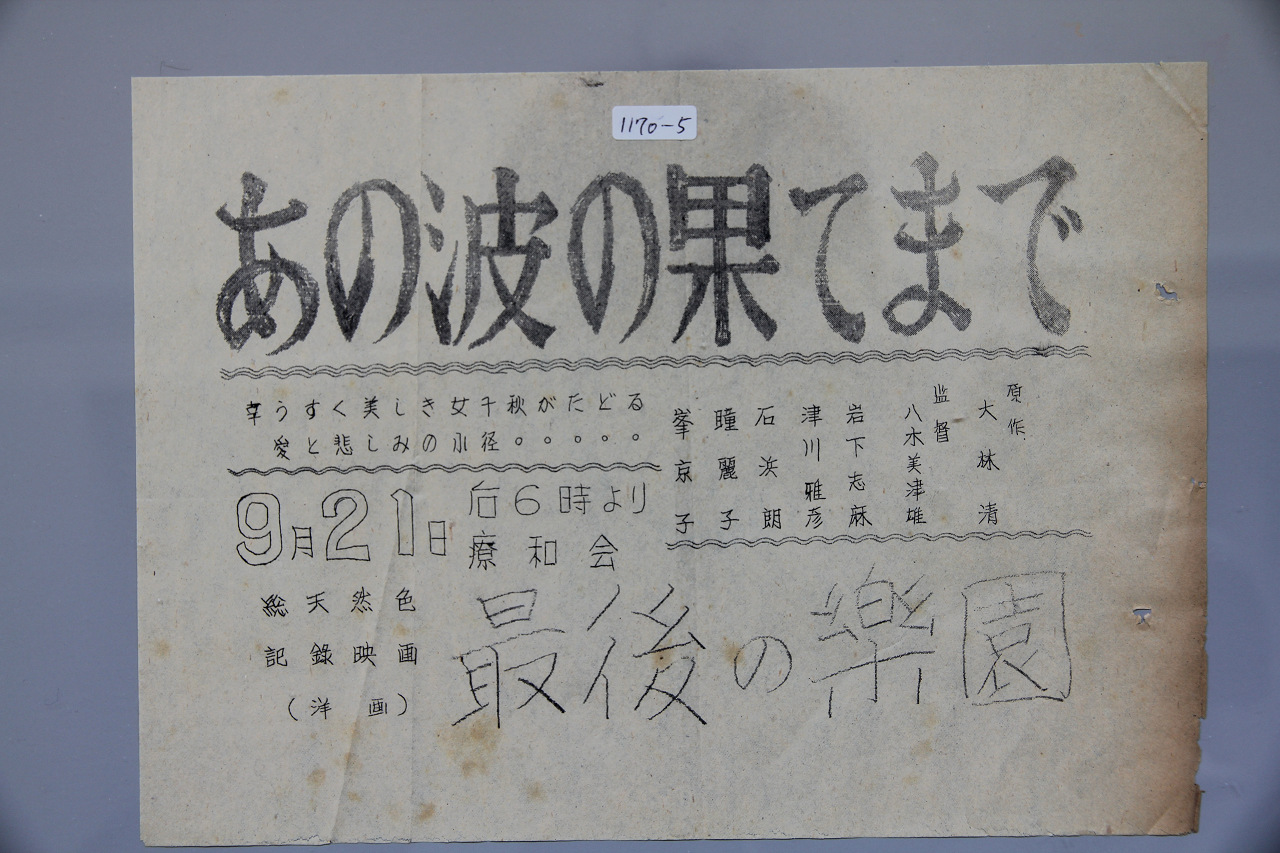 1170-5
あの波の果てまで
幸うすく美しき女千秋がたどる
愛と悲しみの小径。。。。。
原作
大林清
監督
八木美津雄
岩下志麻
津川雅彦
石浜朗
瞳麗子
峯京子
9月21日
后6時より
療和会
総天然色
記錄映画
（洋画）
最後の楽園